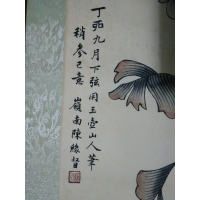 丁卯九月下弦用王壺山人筆
稍參己意 嶺南陳緣督